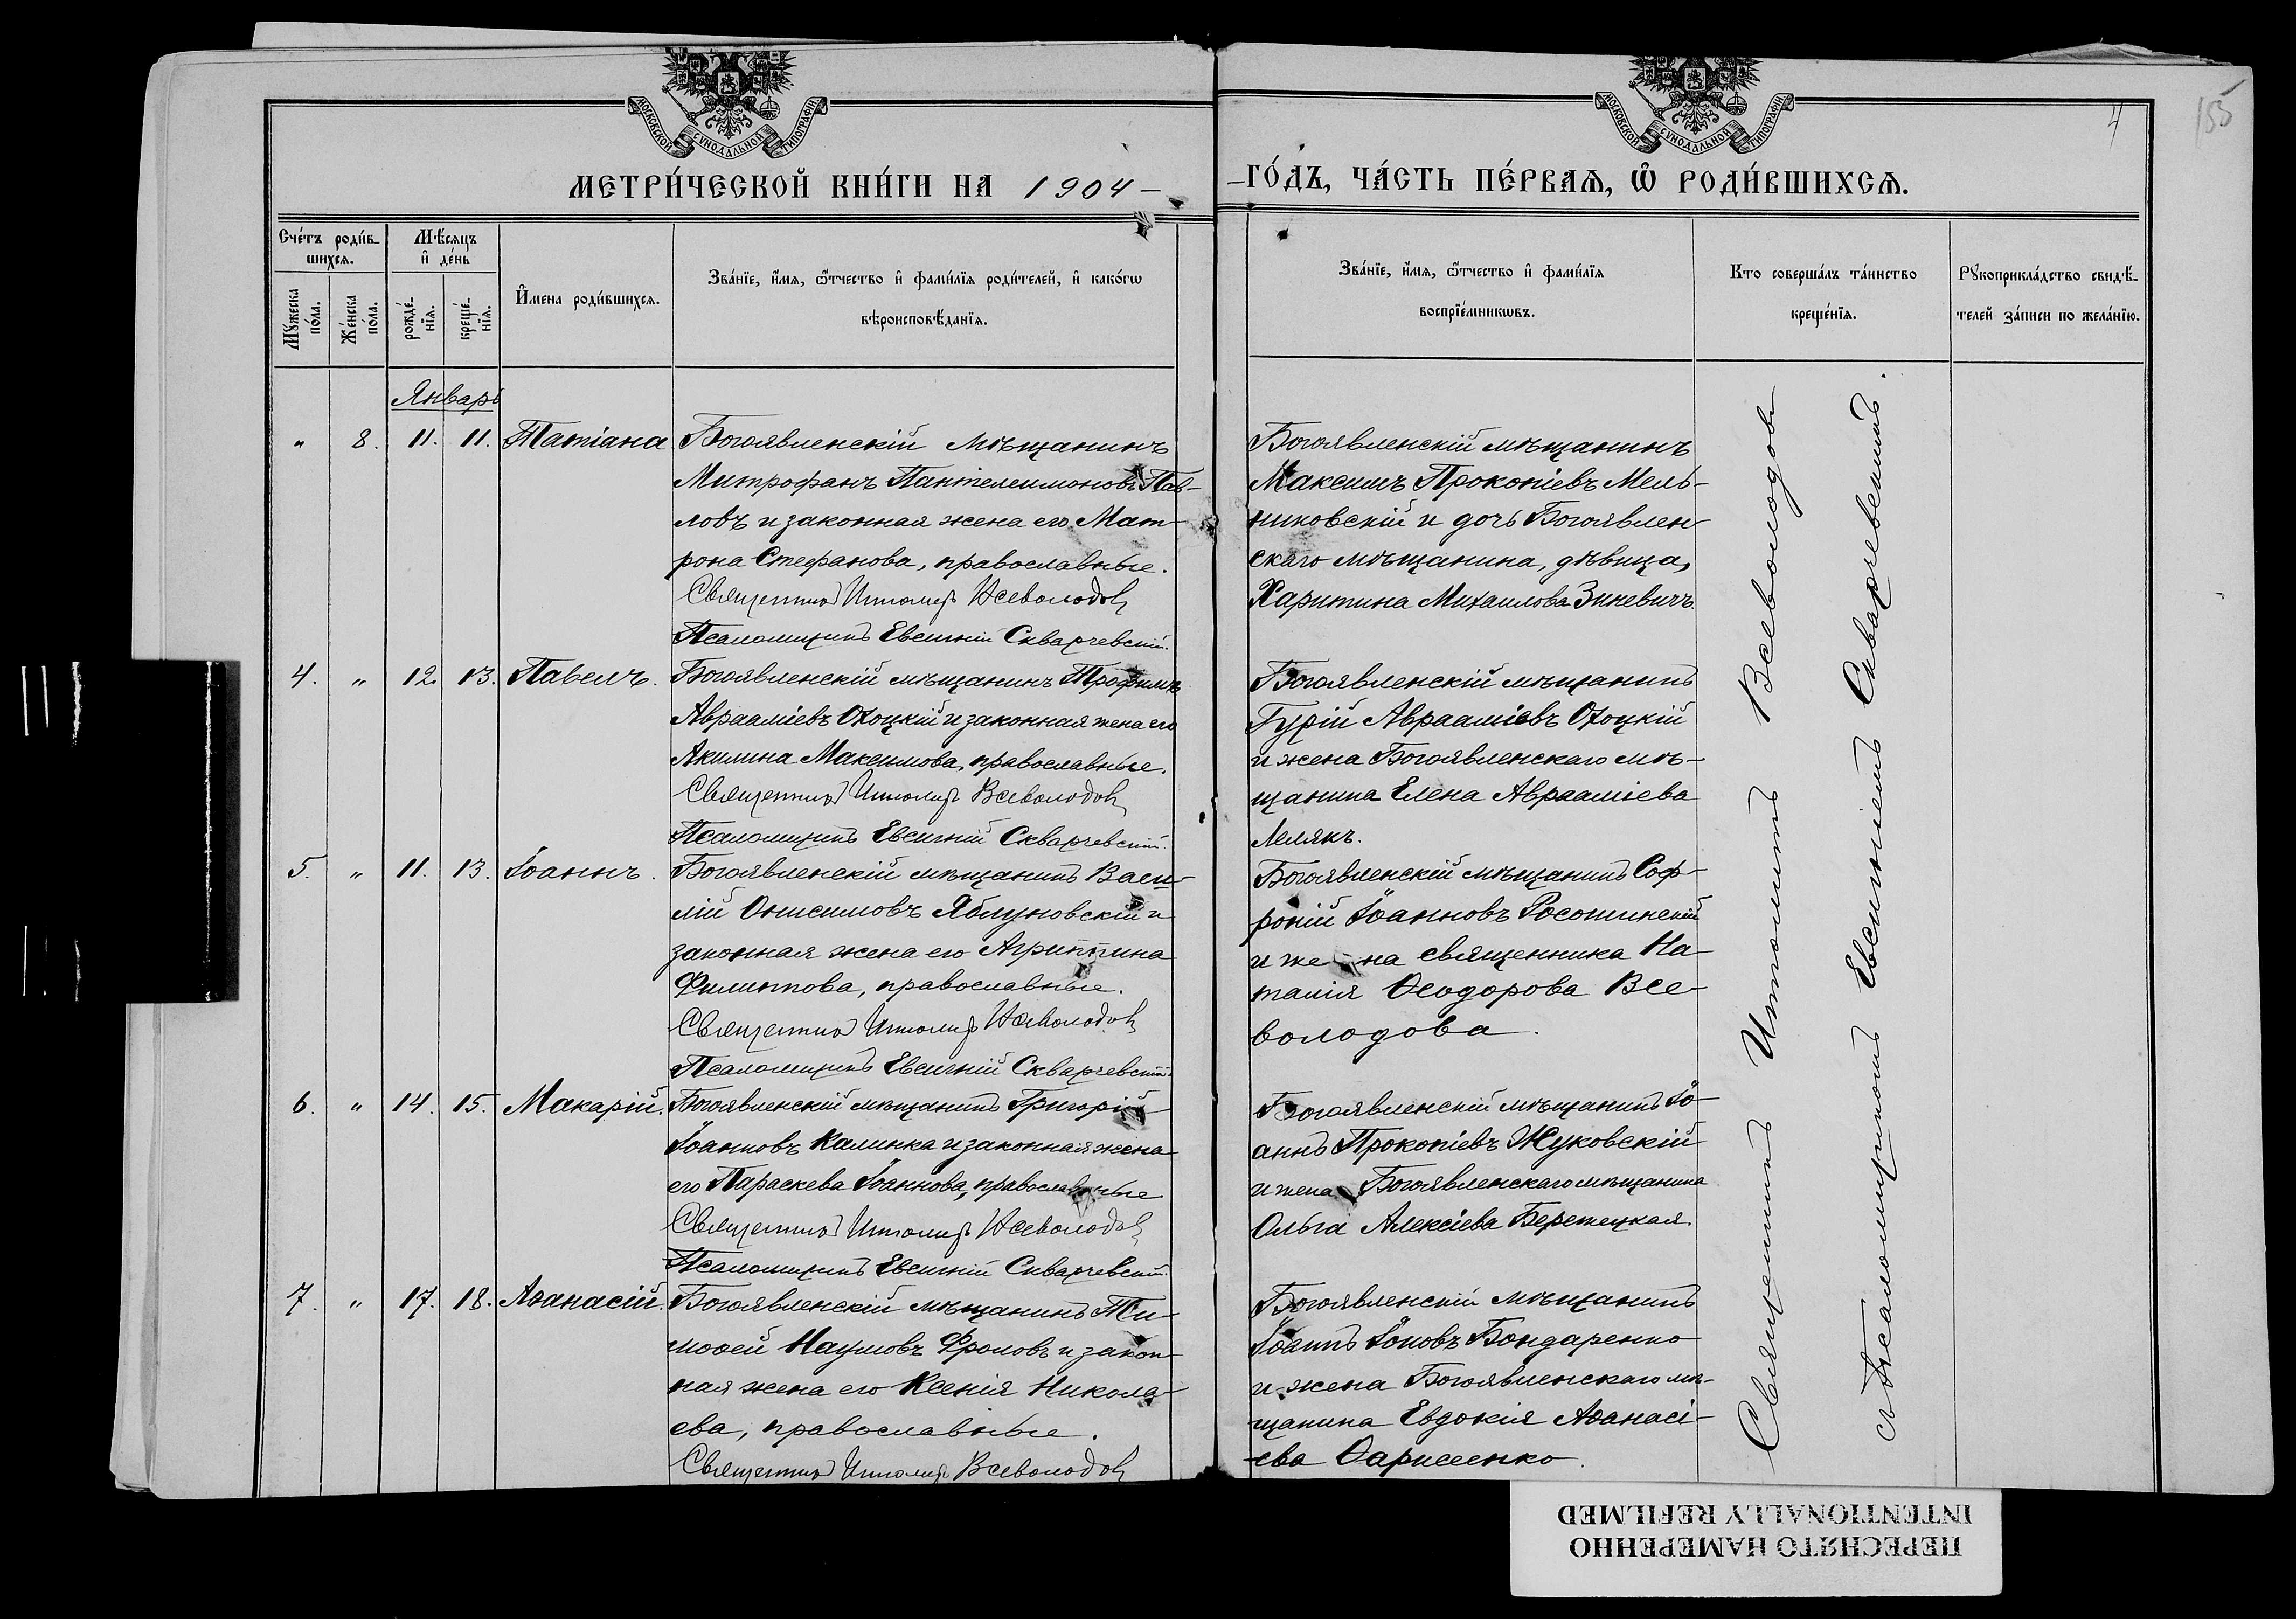 МОСКОВСКОЙ СѴНОДАЛЬНОЙ ТИПОГРАФІИ
МОСКОВСКОЙ СѴНОДАЛЬНОЙ ТИПОГРАФІИ
4
155
МЕТРИ́ЧЕСКОЙ КНИ́ГИ НА 1904 –
– ГО́ДЪ, ЧА́СТЬ ПЕ́РВАѦ, Ѡ҆ РОДИ́ВШИХСѦ.
Сче́тъ роди́в-
шихсѧ.
Мꙋ́жеска
по́ла.
Же́нска
по́ла.
Мѣ́сѧцъ
и҆ де́нь
рожде́-
нїѧ.
креще́-
нїѧ.
И҆мена роди́вшихсѧ.
Зва́нїе, и҆́мѧ, ѻ҆́тчество и҆ фами́лїѧ роди́телей, и҆ како́гѡ
вѣроисповѣ́данїѧ.
Зва́нїе, и҆́мѧ, ѻ҆́тчество и҆ фами́лїѧ
воспрїе́мникѡвъ.
Кто соверша́лъ та́инство
креще́нїѧ.
Рꙋкоприкла́дство свидѣ́-
телей за́писи по жела́нїю.
Январь
" 8. 11. 11. Татіана
Богоявленскій мѣщанинъ
Митрофанъ Пантелеимоновъ Пав-
ловъ и законная жена его Мат-
рона Стефанова, православные.
Священникъ Ипполитъ Всеволодовъ
Псаломщикъ Евсигній Скварчевскій.
Богоявленскій мѣщанинъ
Максимъ Прокопіевъ Мель-
никовскій и дочь Богоявлен-
скаго мѣщанина, дѣвица,
Харитина Михаилова Зинкевичъ.
4. " 12. 13. Павелъ.
Богоявленскій мѣщанинъ Трофимъ
Авраамiевъ Охоцкій и законная жена его
Акилина Максимова, православные.
Священникъ Ипполитъ Всеволодовъ
Псаломщикъ Евсигній Скварчевскій.
Богоявленскій мѣщанинъ
Гурій Авраамiевъ Охоцкій
и жена Богоявленскаго мѣ-
щанина Елена Авраамiева
Лелякъ.
5. " 11. 13. Іоаннъ.
Богоявленскій мѣщанинъ Васи-
лій Онисимовъ Яблуновскій и
законная жена его Агриппина
Филиппова, православные.
Священникъ Ипполитъ Всеволодовъ
Псаломщикъ Евсигній Скварчевскій.
Богоявленскій мѣщанинъ Соф-
роній Іоанновъ Росошинскій
и же-на священника На-
талія Ѳеодорова Все-
володова.
6. " 14. 15. Макарій.
Богоявленскій мѣщанинъ Григорій
Іоанновъ Калинка и законная жена
его Параскева Іоаннова, православные
Священникъ Ипполитъ Всеволодовъ
Псаломщикъ Евсигній Скварчевскій.
Богоявленскій мѣщанинъ Іо-
аннъ Прокопіевъ Жуковскій
и жена Богоявленскаго мѣщанина
Ольга Алексіева Бережецкая.
7. " 17. 18. Аѳанасій.
Богоявленскій мѣщанинъ Ти-
моѳей Наумовъ Фроловъ и закон-
ная жена его Ксенія Никола-
ева, православные.
Священникъ Ипполитъ Всеволодовъ
Богоявленскій мѣщанинъ
Іоаннъ Іоновъ Бондаренко
и жена Богоявленскаго мѣ-
щанина Евдокія Аѳанасі-
ева
Священникъ Ипполитъ Всеволодовъ
съ Псаломщикомъ Евсигніемъ Скварчевскимъ.
ПЕРЕСНЯТО НАМЕРЕННО
INTENTIONALLY REFILMED